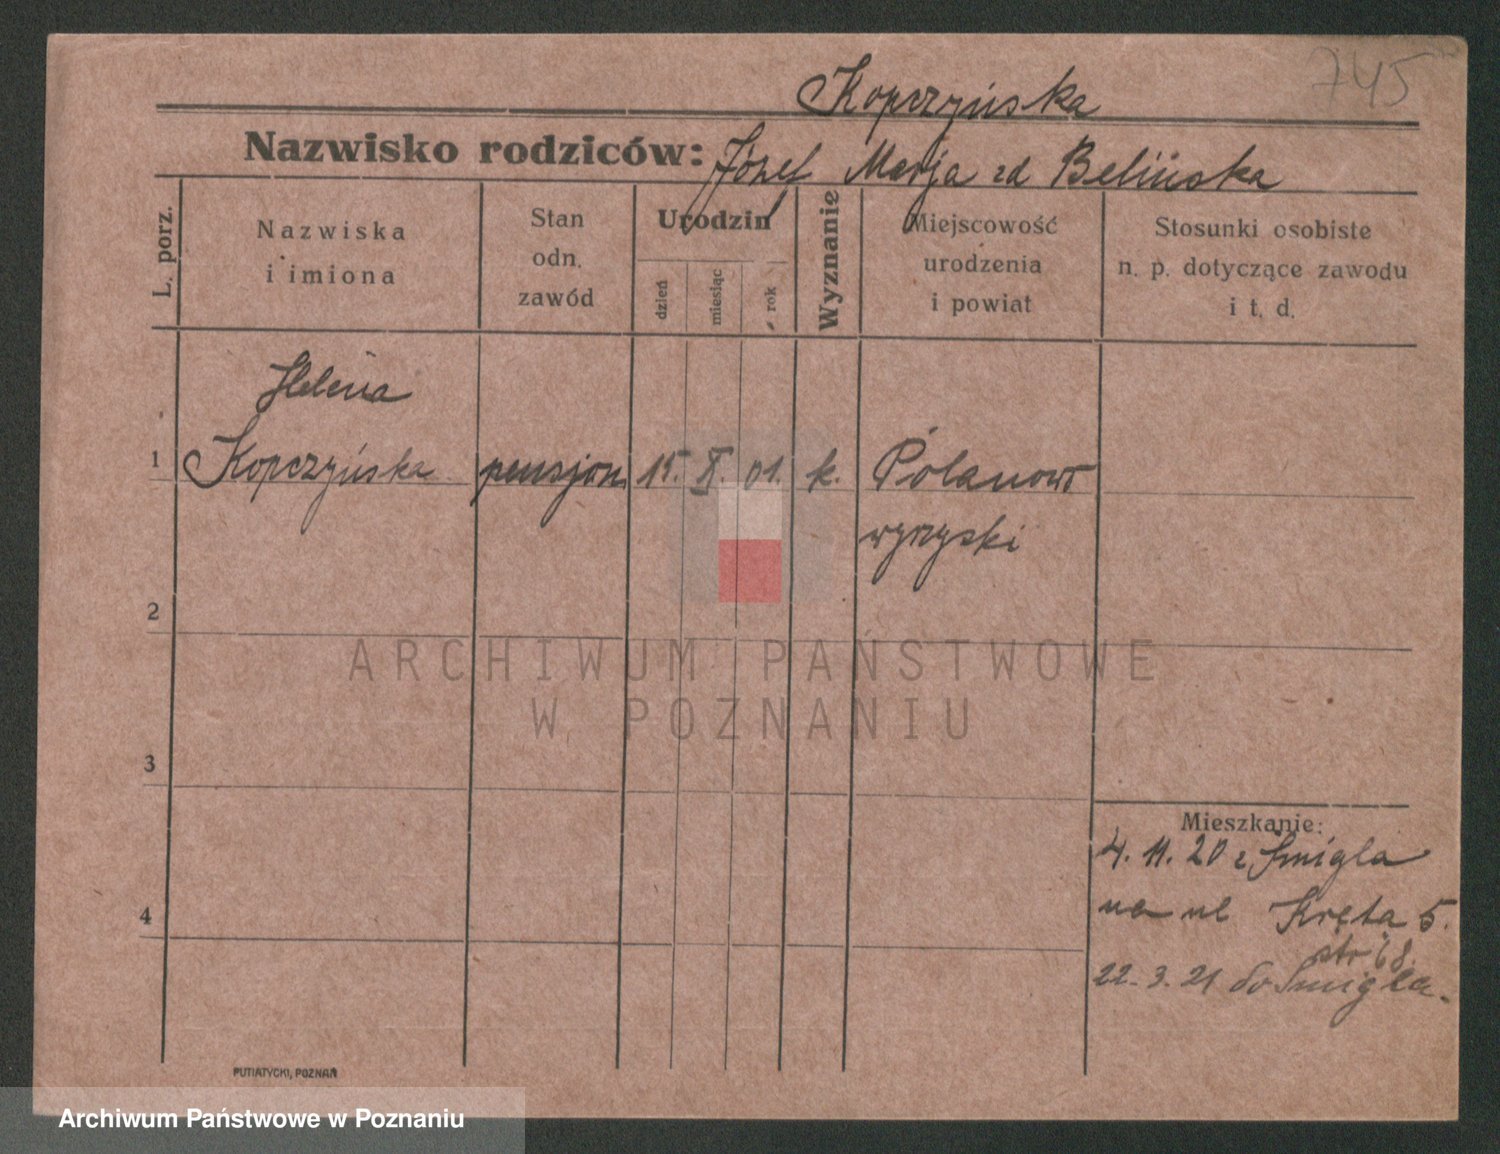 745
Kopczyńska
Nazwisko rodziców: Józef Marja zd Belińska
L. porz.
Nazwiska
i imiona
Stan
odn.
zawód
Urodzin
dzień
miesiąc
rok
Wyznanie
Miejscowość
urodzenia
i powiat
Stosunki osobiste
n. p. dotyczące zawodu
i t. d.
Helena
1 Kopczyńska pensjon. 15. X. 01. k. Polanowo
wyrzyski
2
ARCHIWUM PAŃSTWOWE
W POZNANIU
3
Mieszkanie:
4. 11. 20 z Śmigla
4
na ul Kręta 5.
str 68.
22. 3. 21 do Śmigla.
PUTIATYCKI, POZNAŃ
Archiwum Państwowe w Poznaniu